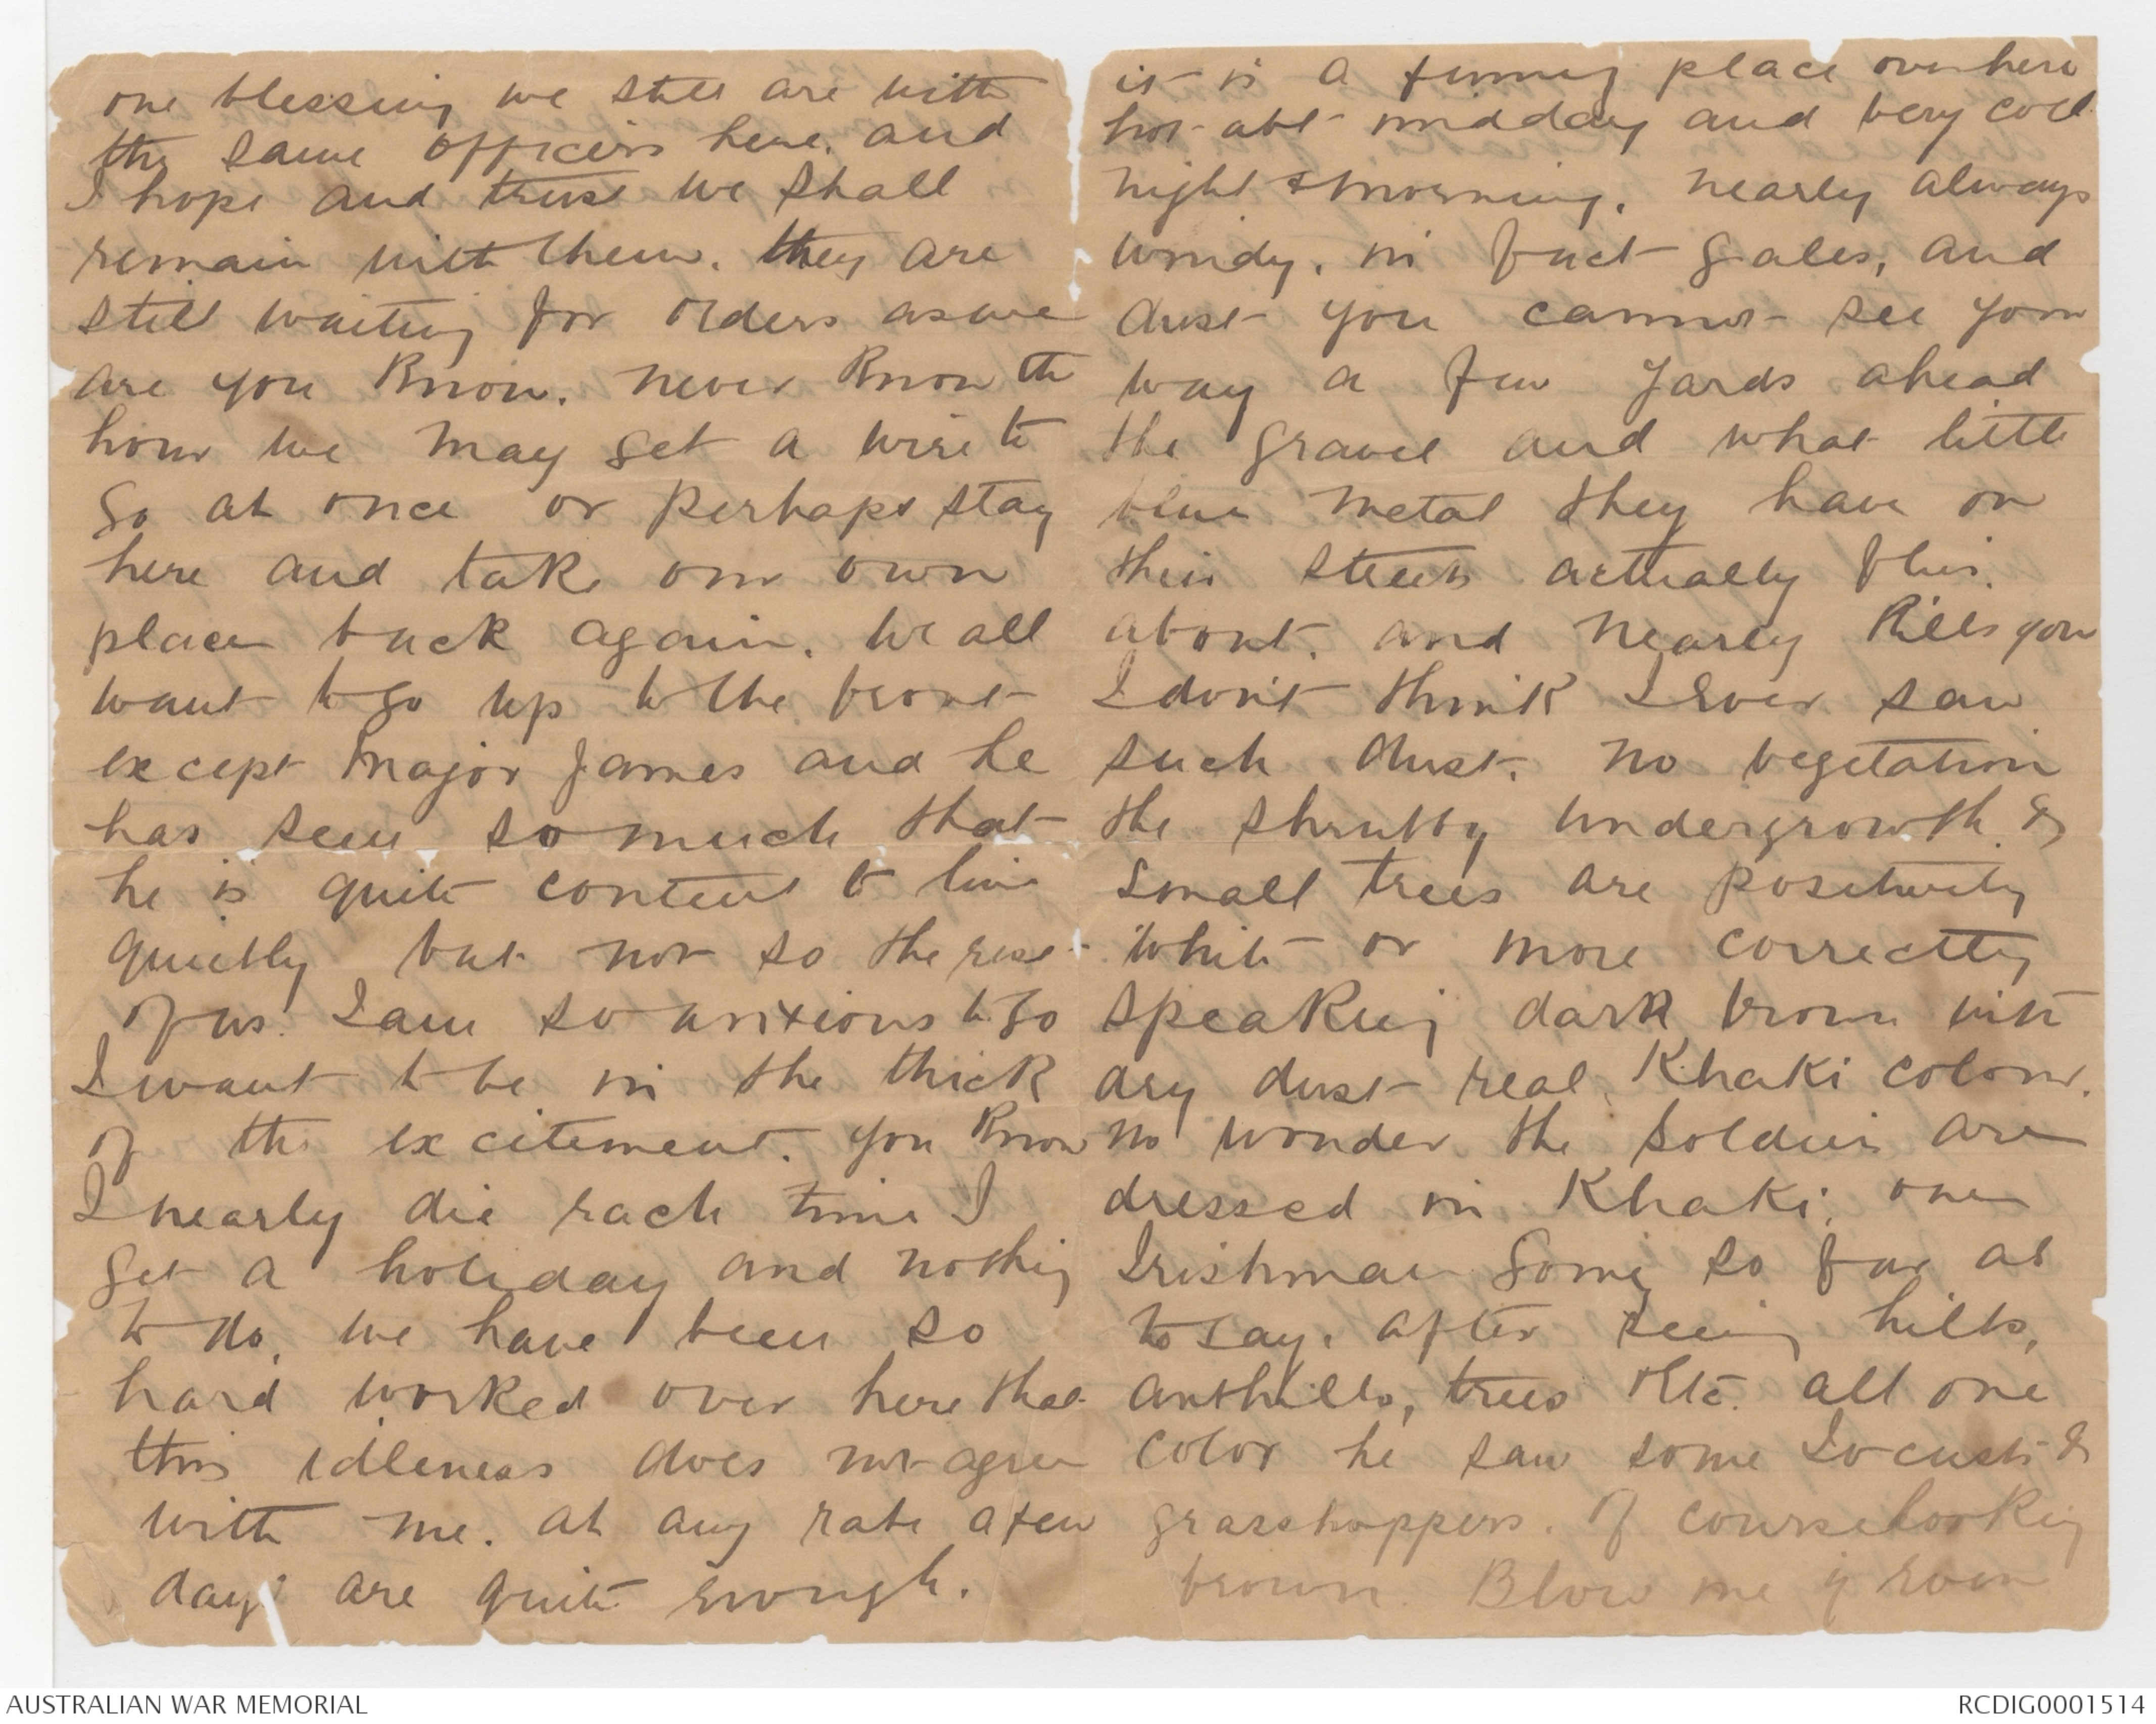 one blessing we still are with
the same officers here. and
I hope and trust we shall
remain with them. they are
still waiting for orders as we
are you know. never know the
hour we may get a wire to
go at once or perhaps stay
here and take our own
place back again. We all
want to go up to the front
except Major James and he
has seen so much that
he is quite content to live
quietly but not so the rest
of us. I am so anxious to go
I want to be in the thick
of the excitement. you know
I nearly die each time I
get a holiday and nothing
to do. we have been so
hard worked over here that
this idleness does not agree
with me. at any rate a few
days are quite enough.
it is a funny place over here
hot abt midday and very cold
night & morning. nearly always
windy. in fact gales, and
dust you cannot see your
way a few yards ahead
the gravel and what little
blue metal they have on
their streets actually flies.
about. and nearly kills you
I don't think I ever saw
such dust. no vegetation
the shrubby undergrowth &
small trees are positively
white or more correctly
speaking dark brown with
dry dust real Khaki colour.
no wonder the soldiers are
dressed in Khaki; one
Irishman going so far as
to say. after seeing hills,
anthills, trees etc. all one
color he saw some Locusts &
grasshoppers. of course looking
brown. Blow me if even
AUSTRALIAN WAR MEMORIAL
RCDIG0001514